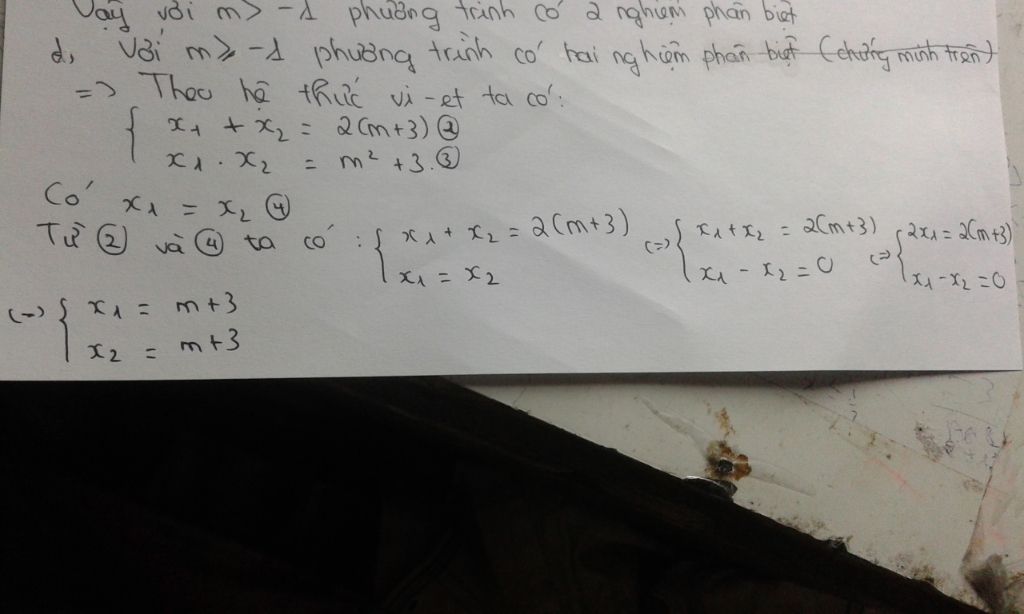 Vậy với m > -1 phương trình có 2 nghiệm phân biệt
d, Với m ≥ -1 phương trình có hai nghiệm phân biệt (chứng minh trên)
=> Theo hệ thức vi-et ta có:
x₁ + x₂ = 2(m+3) ②
x₁ . x₂ = m² + 3. ③
Có x₁ = x₂ ④
Từ ② và ④ ta có : { x₁ + x₂ = 2(m+3) (=) { x₁ + x₂ = 2(m+3) (=) { 2x₁ = 2(m+3)
x₁ = x₂ x₁ - x₂ = 0 x₁ - x₂ = 0
(=) { x₁ = m+3
x₂ = m+3